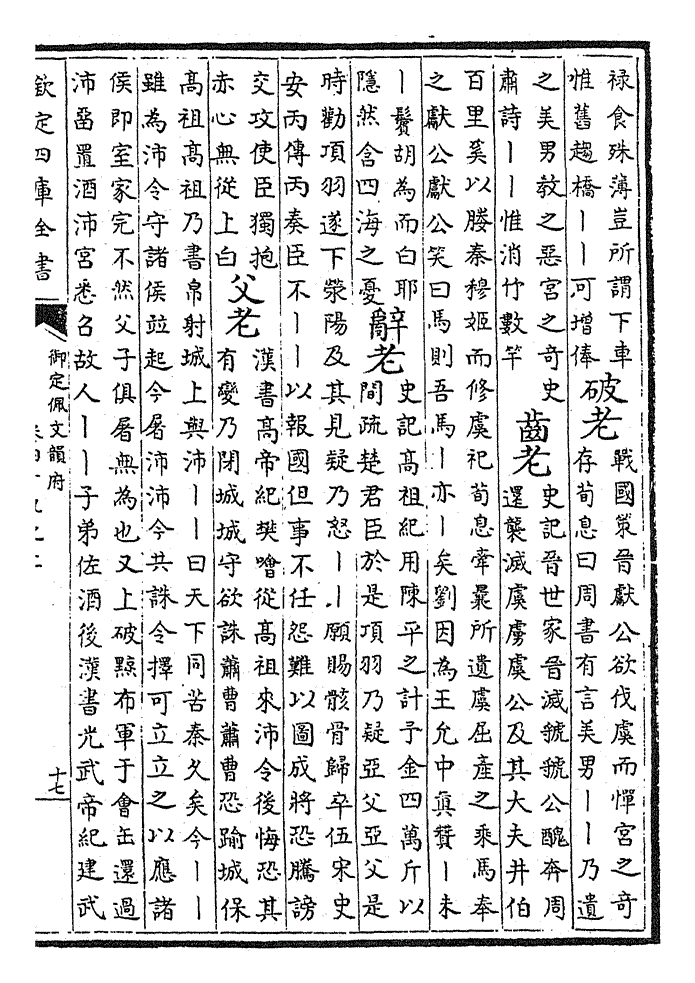 禄食殊薄豈所謂下車
惟舊趨橋丨丨可增俸
破老
戰國策晉獻公欲伐虞而憚宮之奇
存荀息曰周書有言美男丨丨乃遺
之美男教之惡宮之奇史
肅詩丨丨惟消竹數竿
齒老
史記晉世家晉滅虢虢公醜奔周
還襲滅虞虜虞公及其大夫井伯
百里奚以媵秦穆姬而修虞祀荀息牽曩所遺虞屈產之乘馬奉
之獻公獻公笑曰馬則吾馬丨亦丨矣劉因為王允中真贊丨未
丨鬢胡為而白耶
隱然含四海之憂
辭老
史記高祖紀用陳平之計予金四萬斤以
間疏楚君臣於是項羽乃疑亞父亞父是
時勸項羽遂下滎陽及其見疑乃怒丨丨願賜骸骨歸卒伍宋史
安丙傳丙奏臣不丨丨以報國但事不任怨難以圖成將恐騰謗
交攻使臣獨抱
赤心無從上白
父老
漢書高帝紀樊噲從高祖來沛令後悔恐其
有變乃閉城城守欲誅蕭曹蕭曹恐踰城保
高祖高祖乃書帛射城上與沛丨丨曰天下同苦秦久矣今丨丨
雖為沛令守諸侯竝起今屠沛沛今共誅令擇可立立之以應諸
侯即室家完不然父子俱屠無為也又上破黥布軍于會缶還過
沛畱置酒沛宮悉召故人丨丨子弟佐酒後漢書光武帝紀建武
欽定四庫全書
御定佩文韻府
卷四十九之二
十七